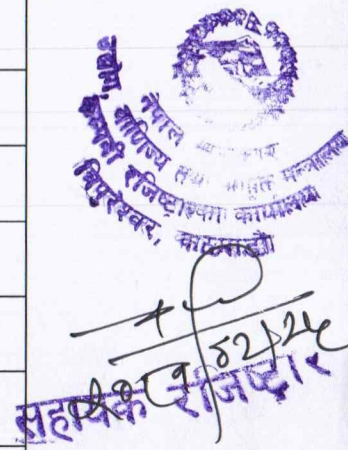 नेपाल सरकार
उद्योग
वाणिज्य तथा आपूर्ति मन्त्रालय
कम्पनी रजिष्ट्रारको कार्यालय
त्रिपुरेश्वर, काठमाडौं
सहायक रजिष्ट्रार